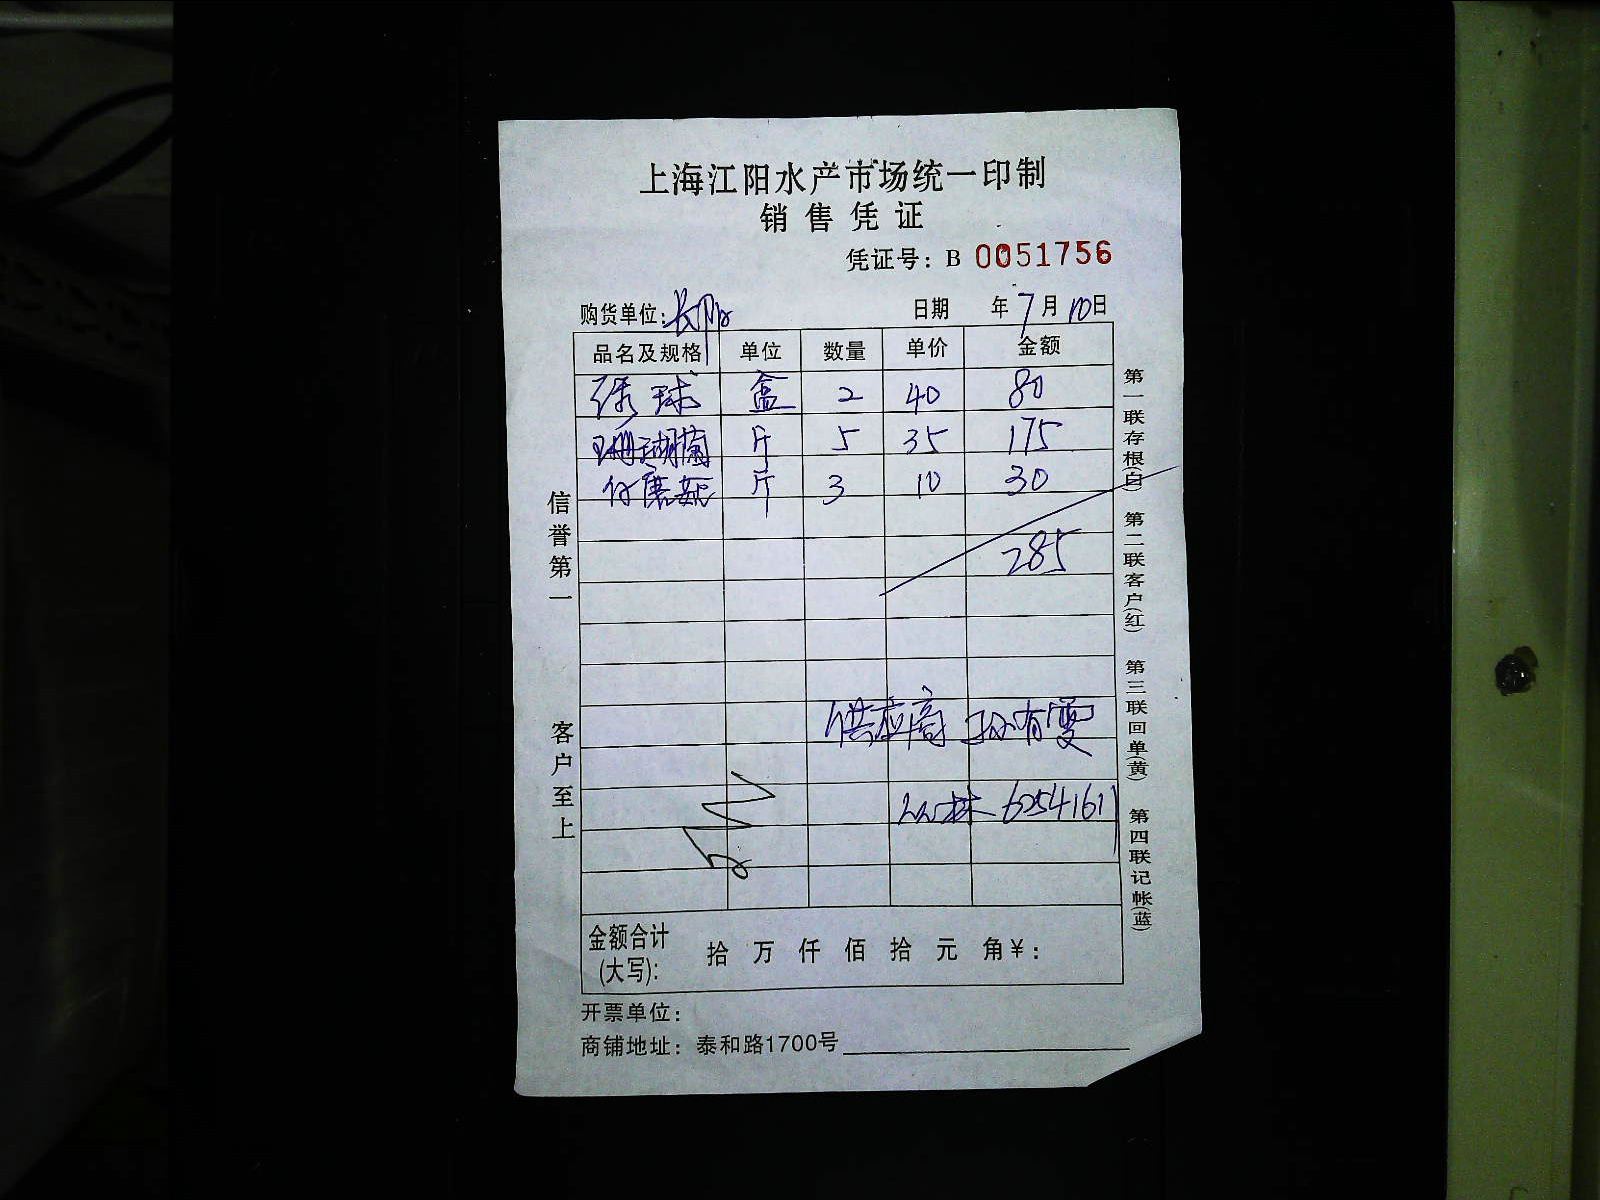 上海江阳水产市场统一印制
销售凭证
凭证号：B 0051756
购货单位：长阳
日期 年 7 月 10 日
品名及规格 单位 数量 单价 金额
绣球 盒 2 40 80
珊瑚菌 斤 5 35 175
斤 3 10 30
285
供应商 孙有雯
丛林 6254161
金额合计(大写)： 拾 万 仟 佰 拾 元 角 ¥：
开票单位：
商铺地址：泰和路1700号
信誉第一 客户至上
第一联存根(白) 第二联客户(红) 第三联回单(黄) 第四联记帐(蓝)